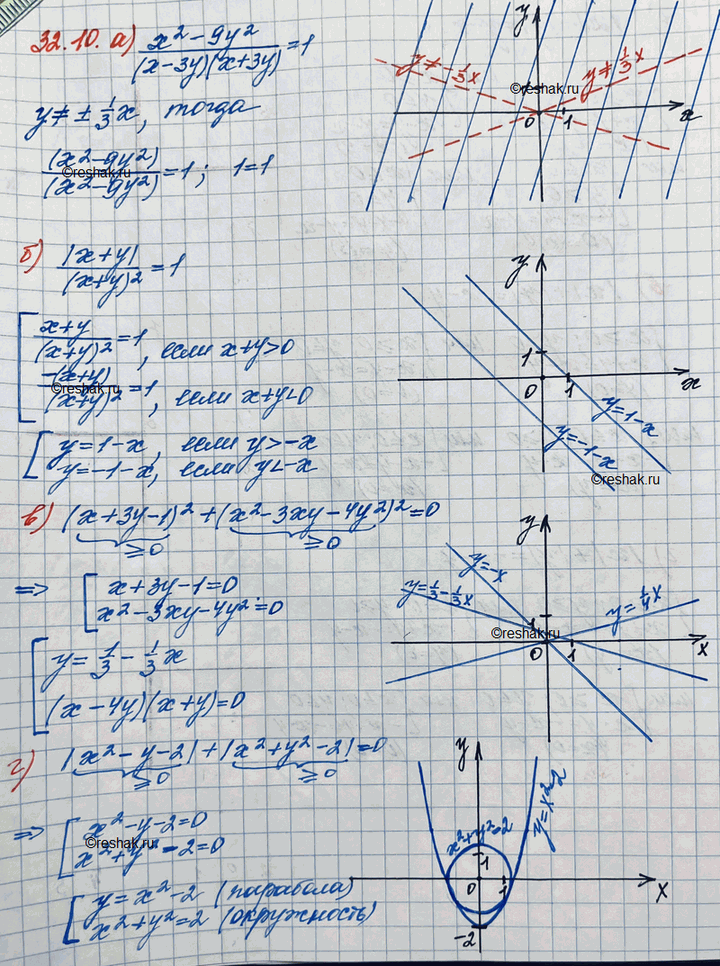 32.10. а) x² - 9y² / (x-3y)(x+3y) = 1
y ≠ ± 1/3 x, тогда
(x² - 9y²) / (x² - 9y²) = 1; 1=1
©reshak.ru
y
y ≠ -1/3 x
y ≠ 1/3 x
©reshak.ru
0 1 x
б) |x+y| / (x+y)² = 1
x+y / (x+y)² = 1, если x+y>0
-(x+y) / (x+y)² = 1, если x+y<0
©reshak.ru
y=1-x, если y>-x
y=-1-x, если y<-x
y
1
0 1 x
y=1-x
y=-1-x
©reshak.ru
в) (x+3y-1)² + (x²-3xy-4y²)² = 0
≥0 ≥0
=> x+3y-1=0
x²-3xy-4y²=0
y = 1/3 - 1/3 x
(x-4y)(x+y)=0
y
y=-x
y=1/3-1/3x
y=1/4x
1
©reshak.ru
0 1 x
г) |x²-y-2| + |x²+y²-2| = 0
≥0 ≥0
=> x²-y-2=0
x²+y²-2=0
©reshak.ru
y=x²-2 (парабола)
x²+y²=2 (окружность)
y
x²+y²=2
y=x²-2
1
0 1 x
-2